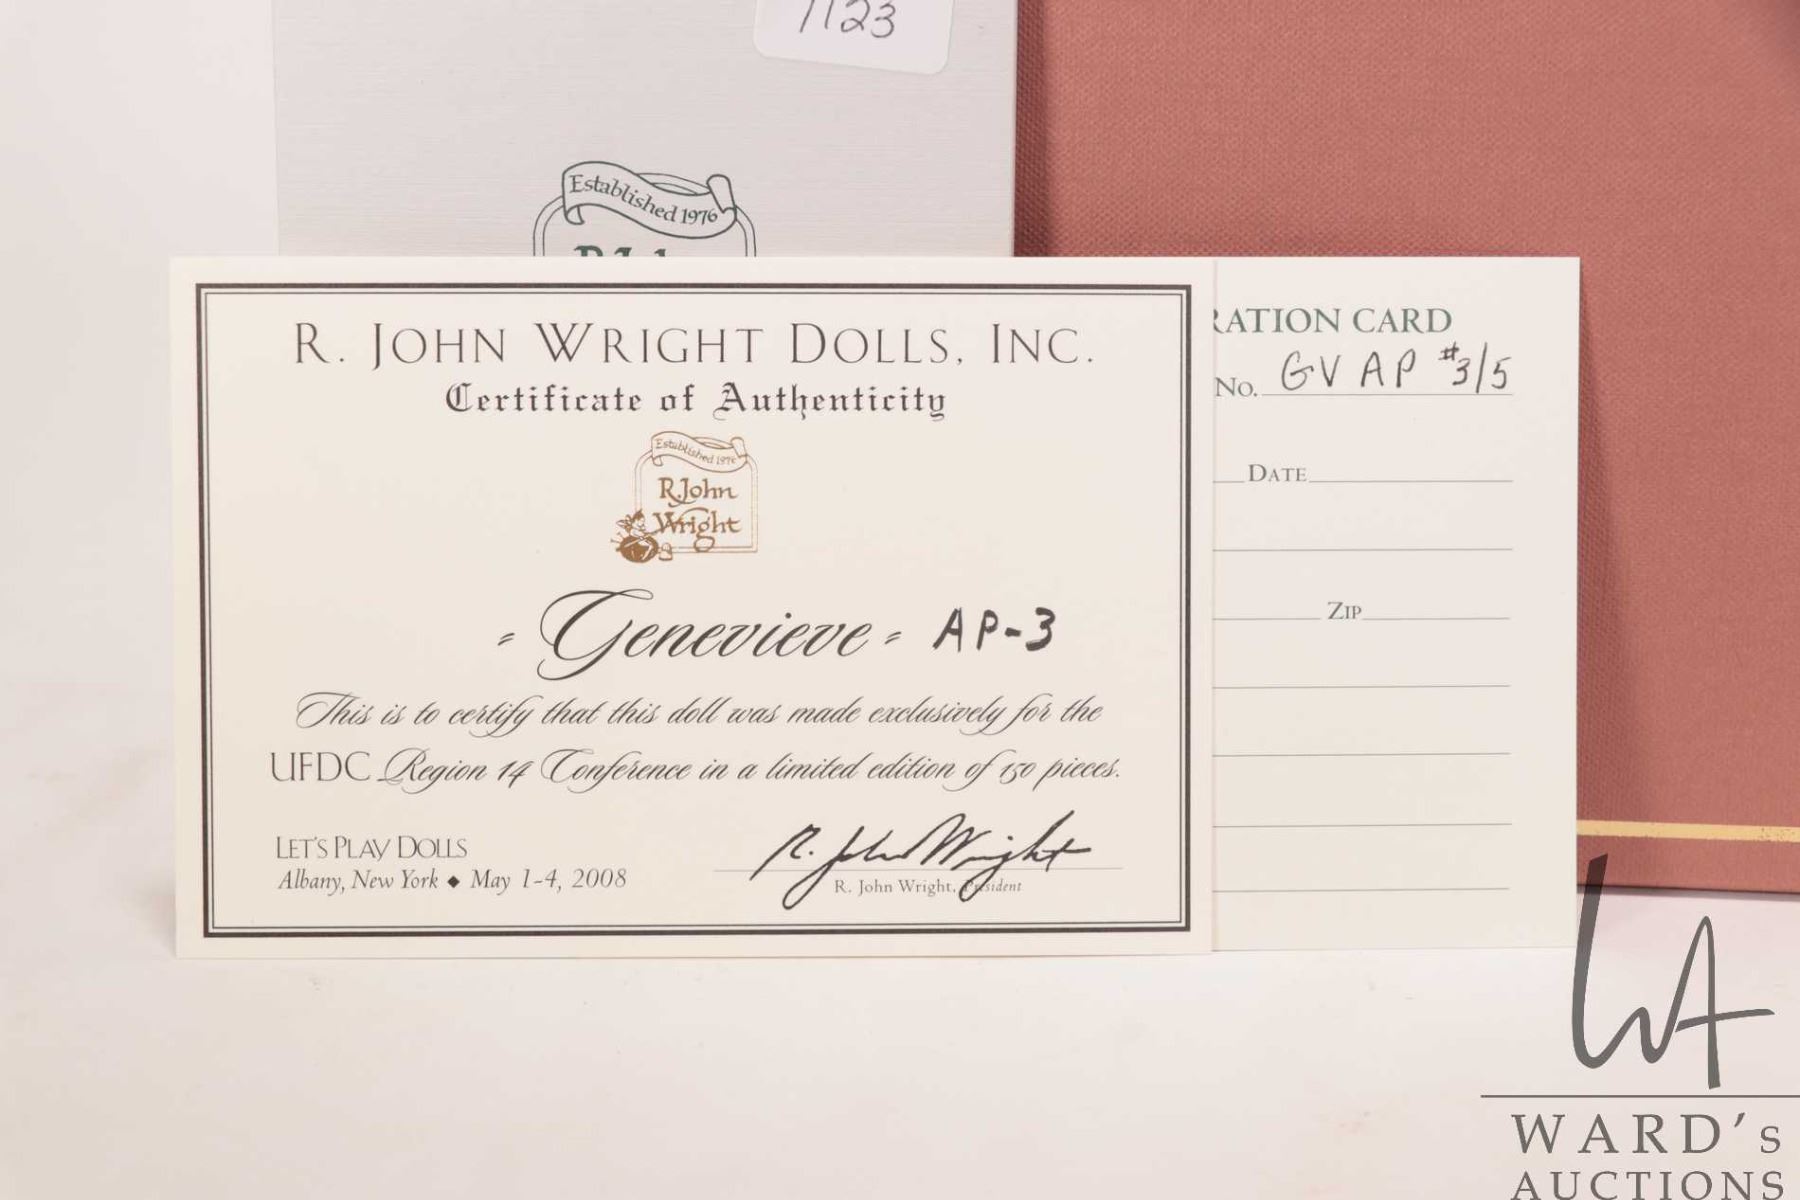 1123
Established 1976
R. JOHN WRIGHT DOLLS, INC.
Certificate of Authenticity
Established 1976
R. John
Wright
- Genevieve - AP-3
This is to certify that this doll was made exclusively for the
UFDC Region 14 Conference in a limited edition of 150 pieces.
LET'S PLAY DOLLS
Albany, New York ◆ May 1-4, 2008
R. John Wright
R. John Wright, President
RATION CARD
No. GV AP #3/5
DATE
ZIP
WA
WARD's
AUCTIONS